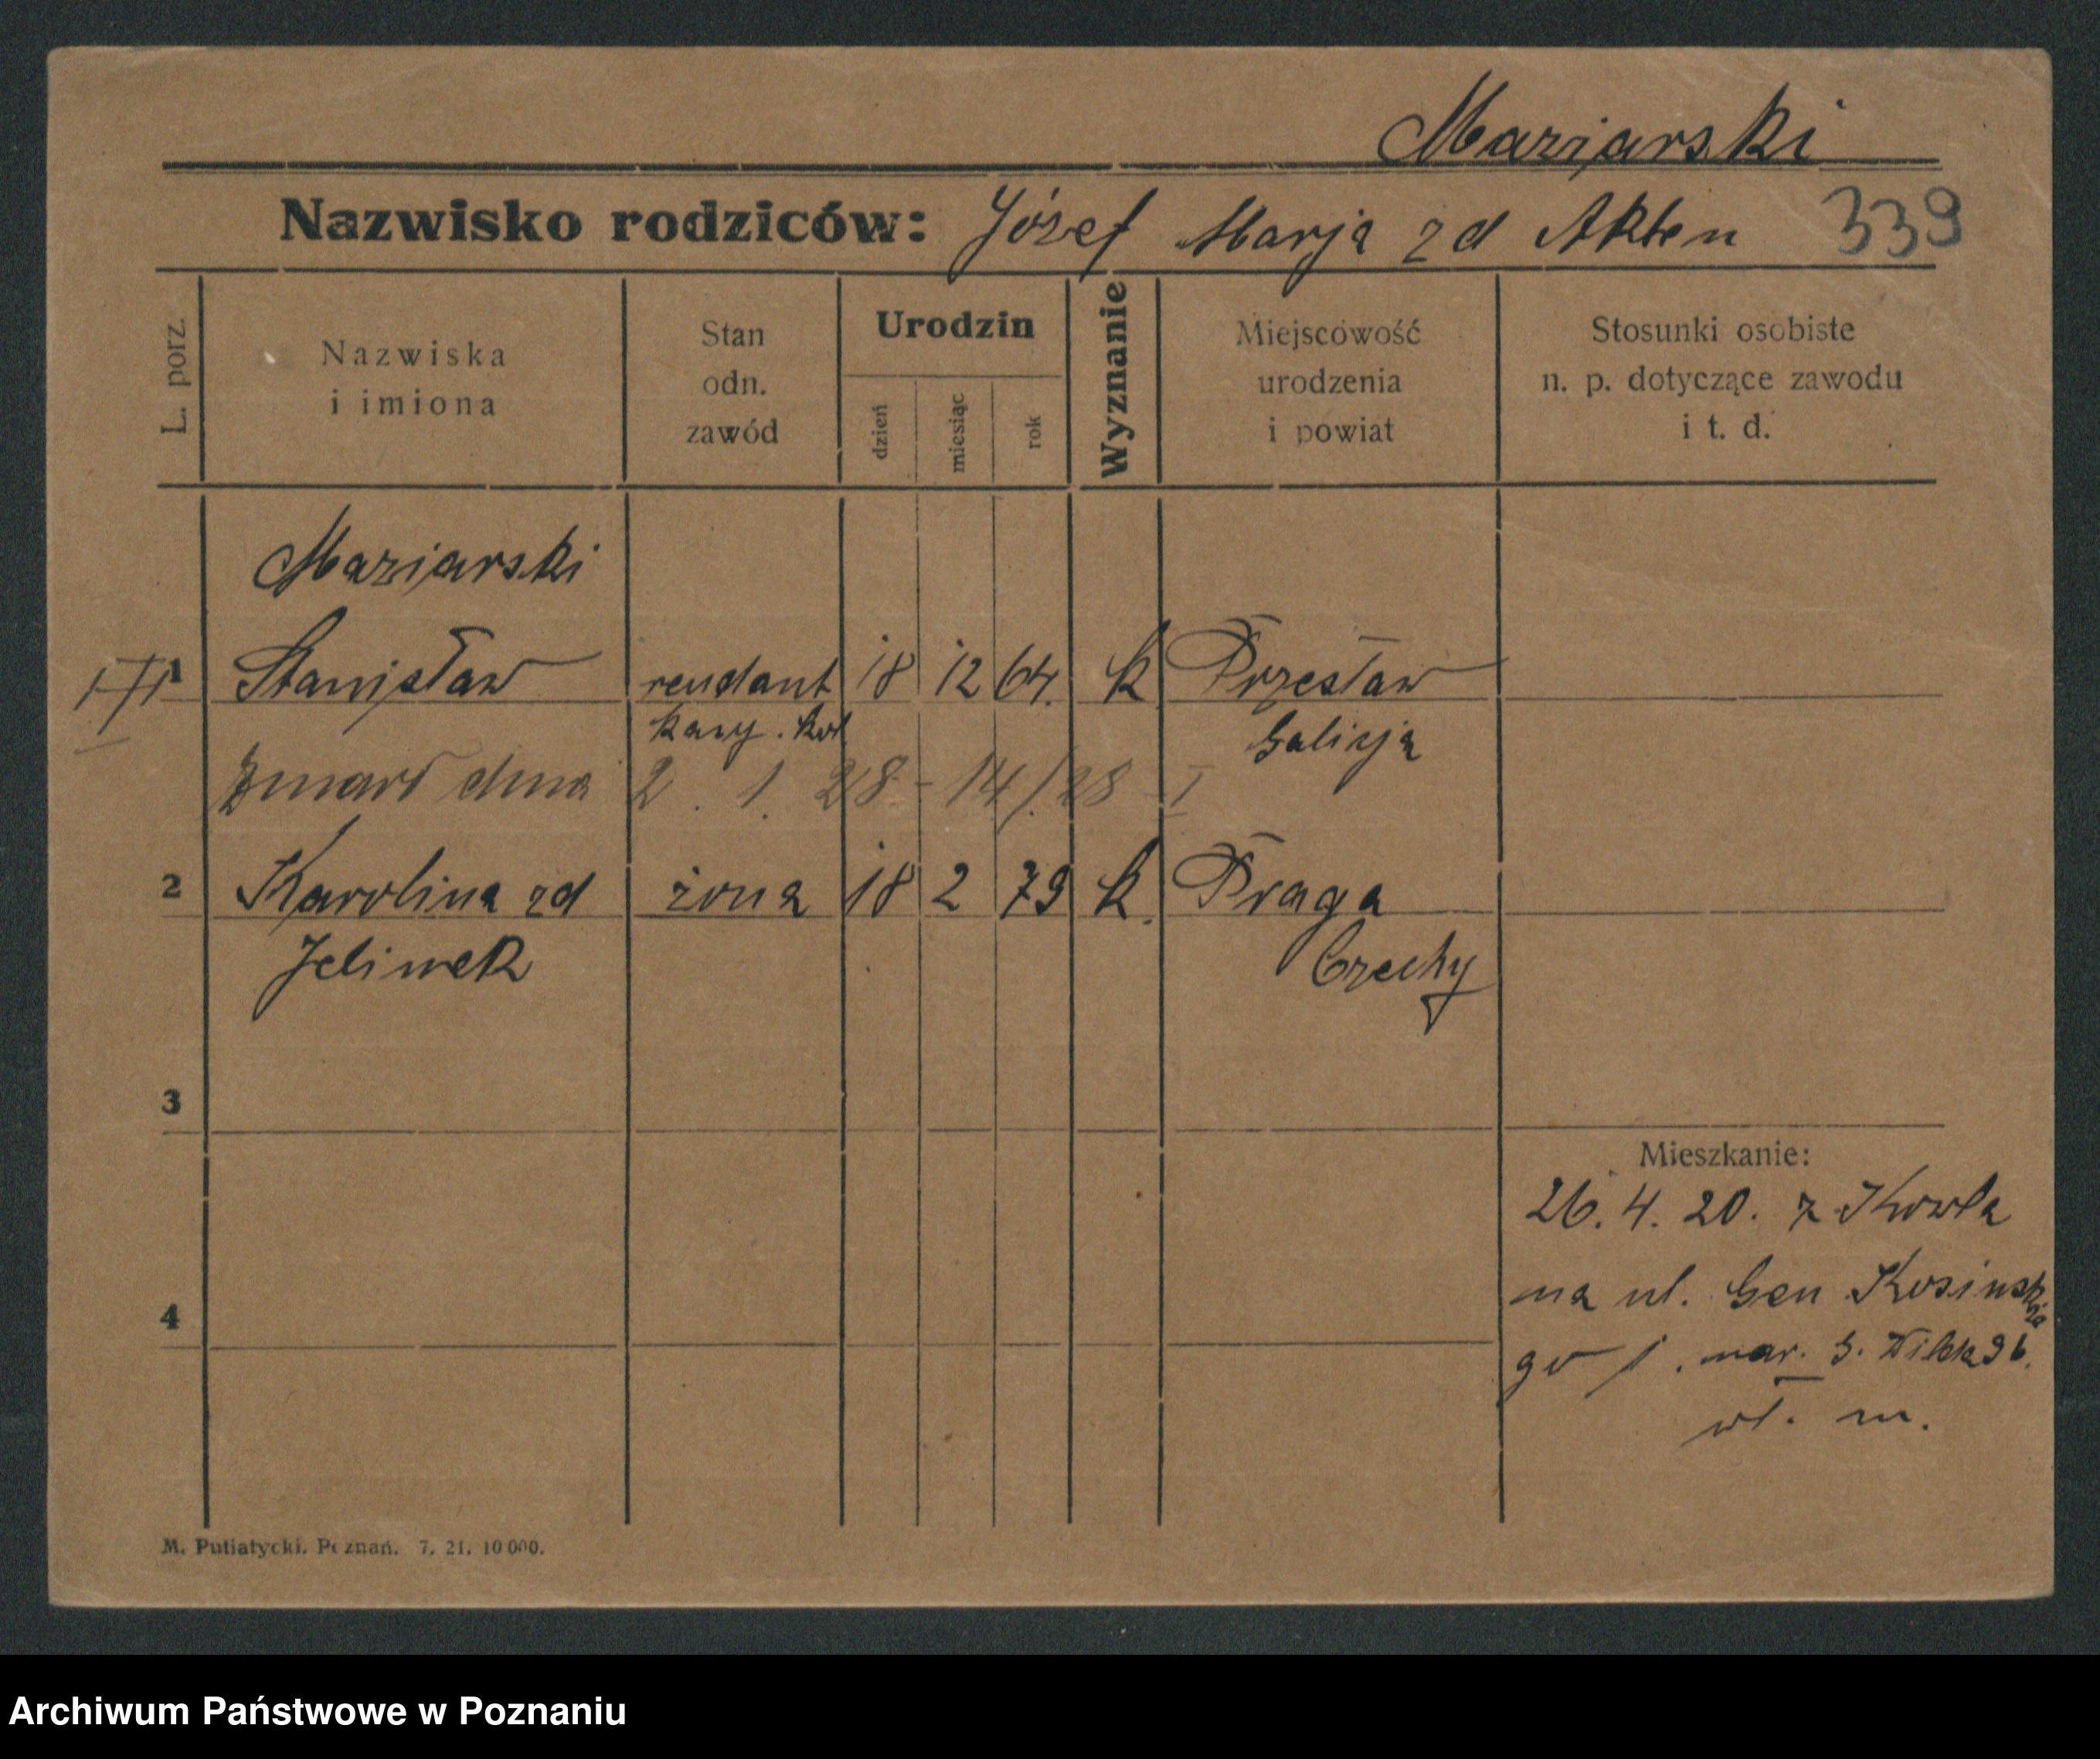 Maziarski
Nazwisko rodziców: Józef Marja zd Akten 339
L. porz.
Nazwiska
i imiona
Stan
odn.
zawód
Urodzin
dzień
miesiąc
rok
Wyznanie
Miejscowość
urodzenia
i powiat
Stosunki osobiste
n. p. dotyczące zawodu
i t. d.
Maziarski
1 Stanisław rendant 18 12 64. k Przesław
kasy. kol Galicja
Zmarł dnia 2. 1. 28 - 14/28 - I
2 Karolina zd żona 18 2 79 k. Praga
Jelinek Czechy
3
Mieszkanie:
26. 4. 20. z Kowla
na ul. Gen Kosińskie
4
go 1. nar. G. Wilda 96.
wł. m.
M. Putiatycki. Poznań. 7. 21. 10 000.
Archiwum Państwowe w Poznaniu